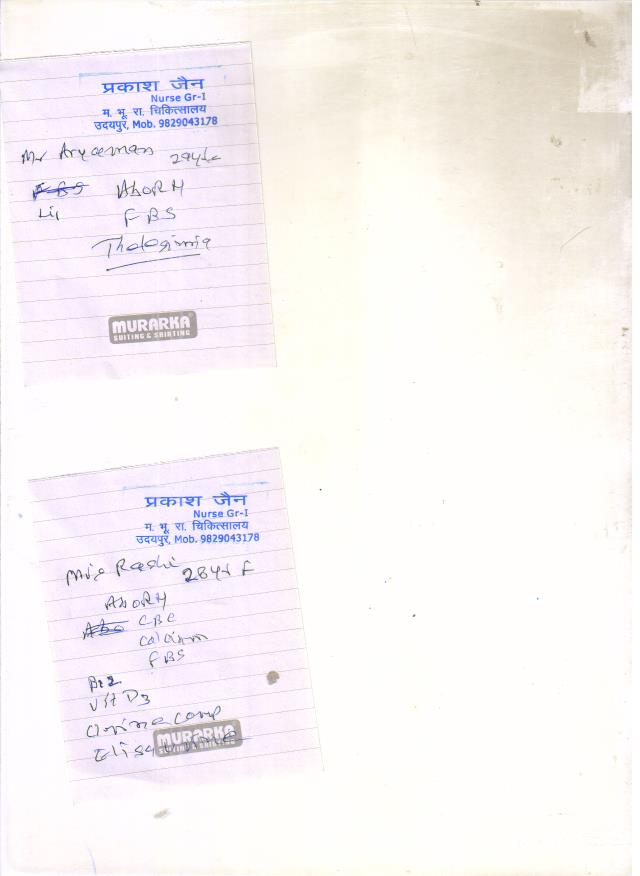 प्रकाश जैन
Nurse Gr-I
म. भू. रा. चिकित्सालय
उदयपुर, Mob. 9829043178
Mr Aryaman 29yrs
FBS ABORH
FBS
Thelesimia
MURARKA
SUITING & SHIRTING
प्रकाश जैन
Nurse Gr-I
म. भू. रा. चिकित्सालय
उदयपुर, Mob. 9829043178
Rashi 28yr F
ABORH
ABO CBC
Calcium
FBS
B12
Vit D3
Urine comp
Elisa
MURARKA
SUITING & SHIRTING